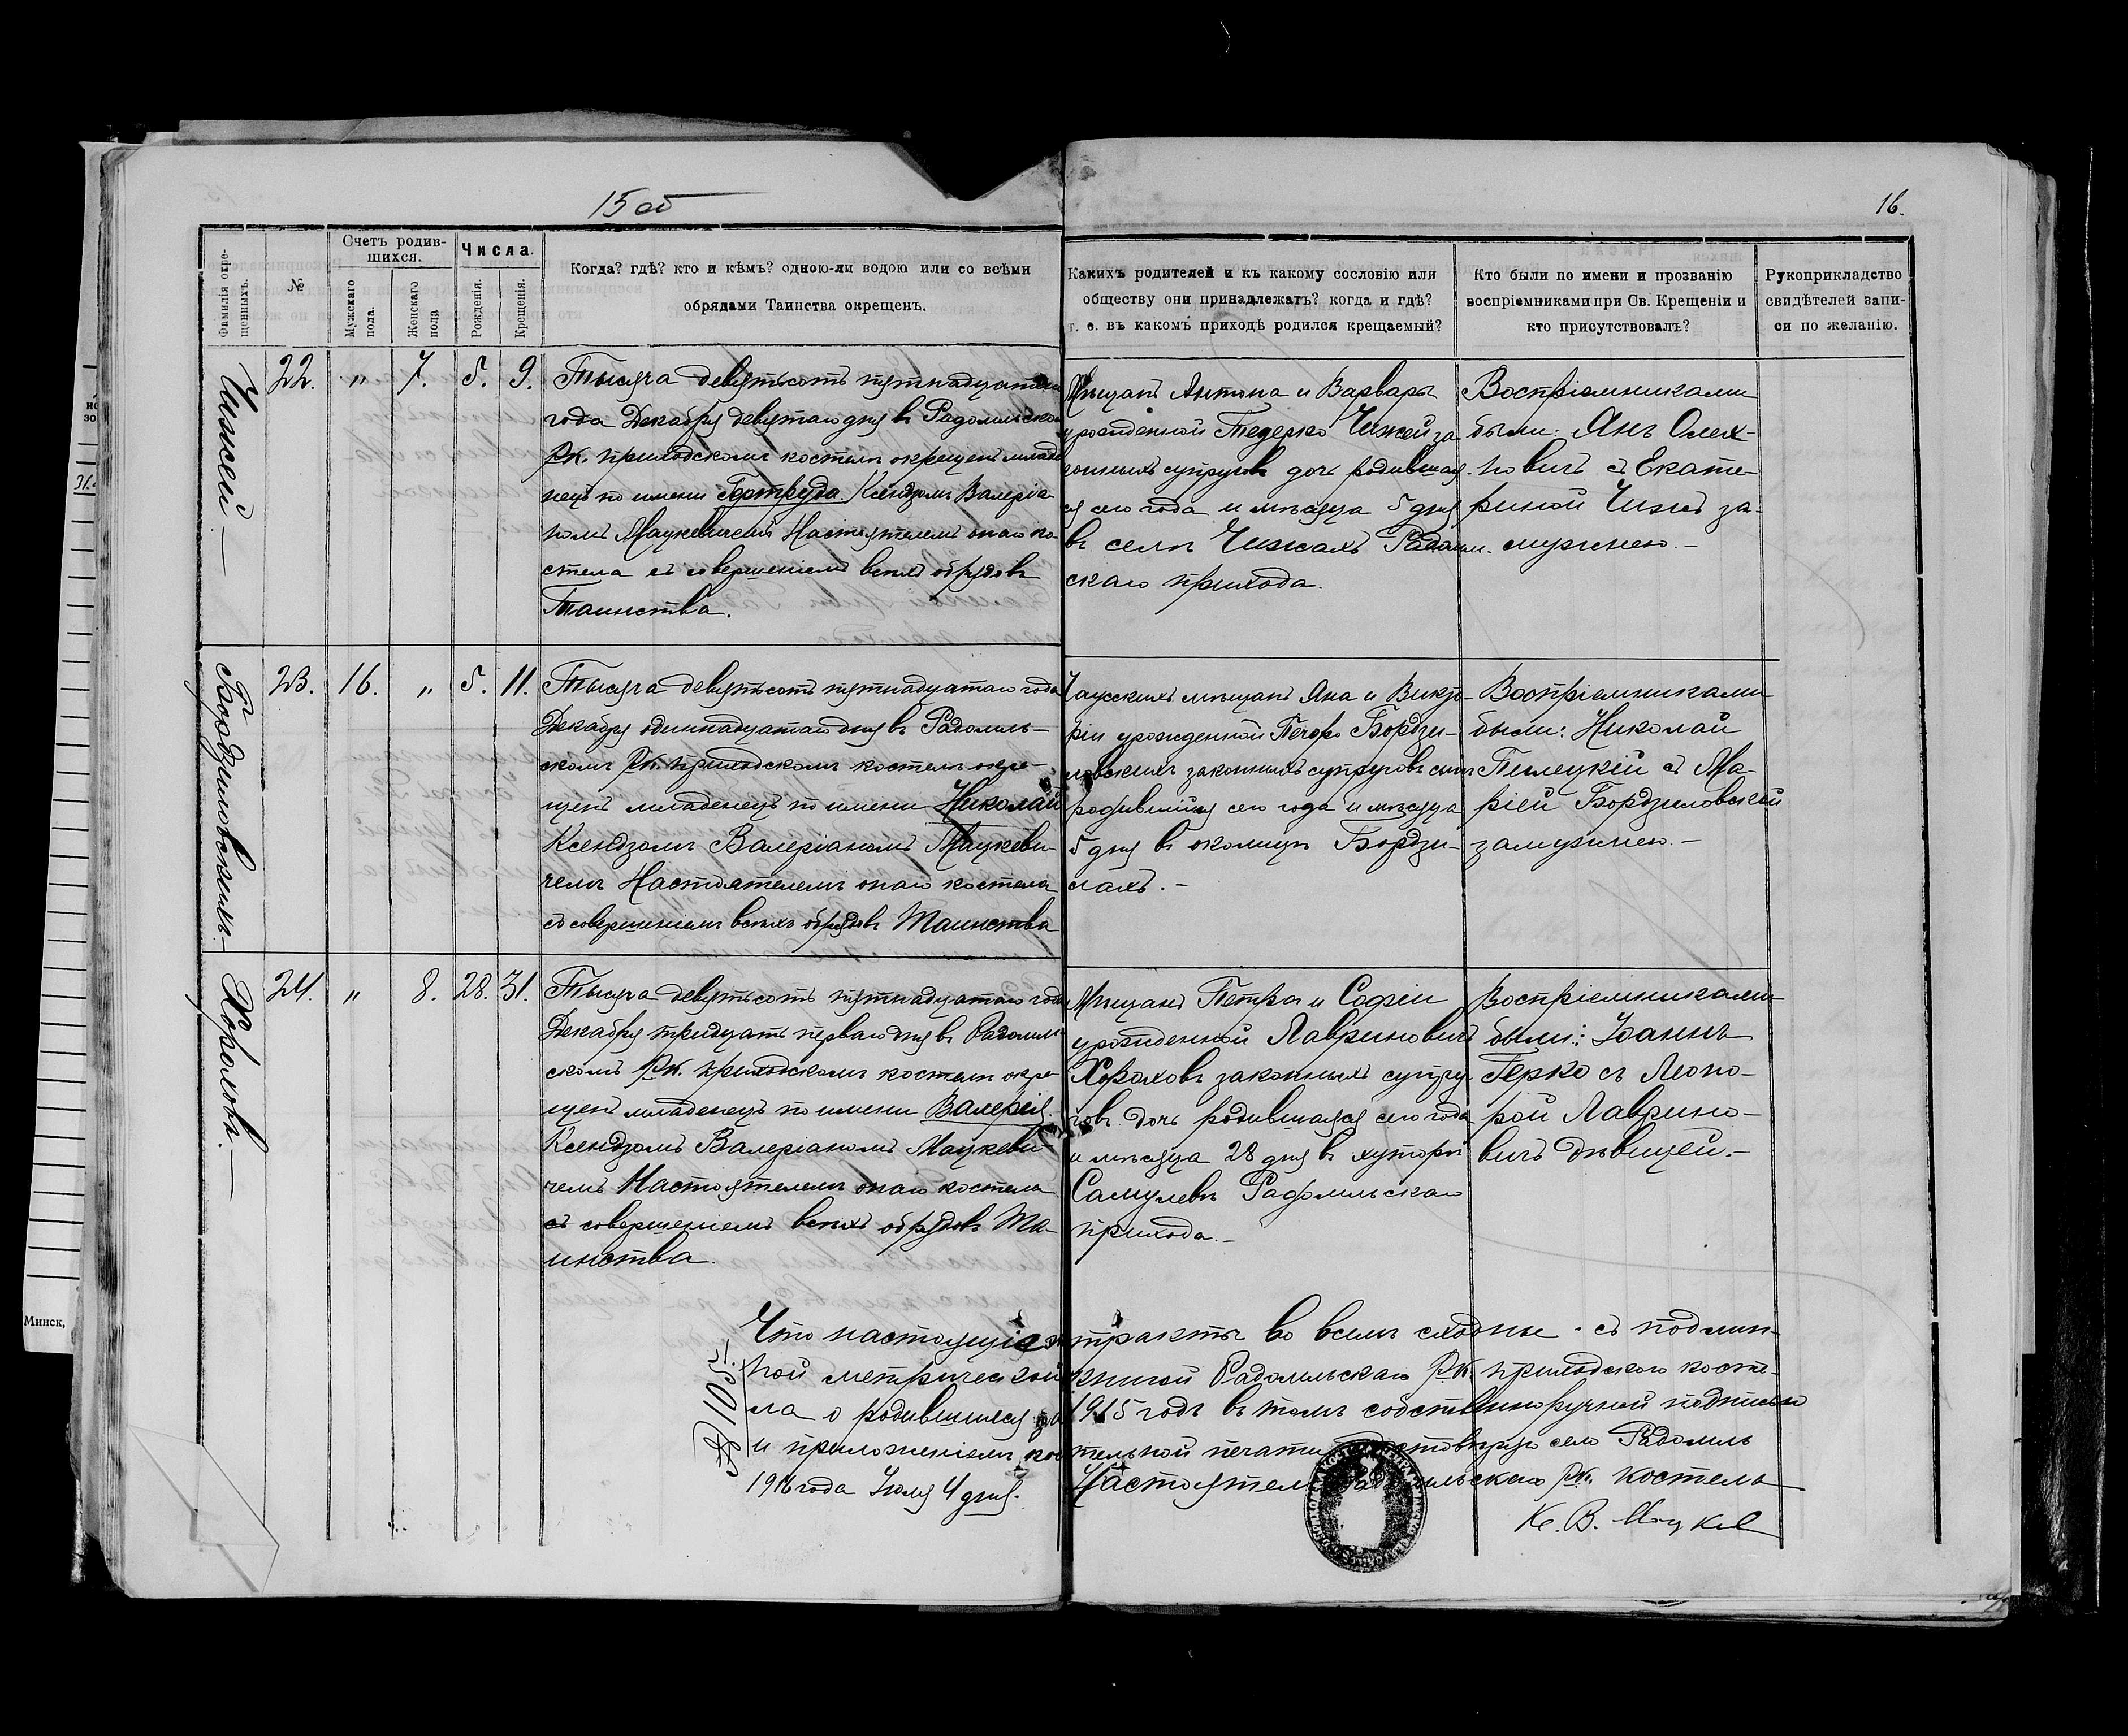 15 об
16.
Фамилія окре-
щенныхъ.
№
Счетъ родив-
шихся.
Мужскаго
пола.
Женскаго
пола
Числа.
Рожденія.
Крещенія.
Когда? гдѣ? кто и кѣмъ? одною-ли водою или со всѣми
обрядами Таинства окрещенъ.
Какихъ родителей и къ какому сословію или
обществу они принадлежатъ? когда и гдѣ?
т. е. въ какомъ приходѣ родился крещаемый?
Кто были по имени и прозванію
воспріемниками при Св. Крещеніи и
кто присутствовалъ?
Рукоприкладство
свидѣтелей запи-
си по желанію.
Чижей
22. " 7. 5. 9.
Тысяча девятьсотъ пятнадцатаго
года Декабря девятаго дня въ Радомльском
Рк. приходскомъ костелѣ окрещенъ младе
нецъ по имени Гертруда Ксендзомъ Валеріа
номъ Мацкевичемъ Настоятелемъ онаго ко-
стела съ совершеніемъ всѣхъ обрядовъ
Таинства.
Мѣщанъ Антона и Варвары
урожденной Тедерко Чижей за
конныхъ супруговъ дочь родившая
ся сего года и мѣсяца 5 дня
въ селѣ Чижахъ Радомл.
скаго прихода.
Воспріемниками
были: Янъ Олех-
новичъ съ Екате-
риной Чижъ за-
мужнею.-
Бордзиловскихъ.
23. 16. " 5. 11.
Тысяча девятьсотъ пятнадцатаго года
Декабря одиннадцатаго дня въ Радомль-
скомъ Рк. приходскомъ костелѣ окре-
щенъ младенецъ по имени Николай
Ксендзомъ Валеріаномъ Мацкеви-
чемъ Настоятелемъ онаго костела
съ совершеніемъ всѣхъ обрядовъ Таинства
Чаусскихъ мѣщанъ Яна и Викто-
ріи урожденной Бордзи-
ловскихъ законныхъ супруговъ сынъ
родившійся сего года и мѣсяца
5 дня въ околицѣ Бордзи-
лахъ.-
Воспріемниками
были: Николай
Пилецкій съ Ма-
ріей Бордзиловской
замужнею.-
Хороховъ.
24. " 8. 28. 31.
Тысяча девятьсотъ пятнадцатаго года
Декабря тридцать перваго дня въ Радомль
скомъ Рк. приходскомъ костелѣ окре-
щенъ младенецъ по имени Валерія
Ксендзомъ Валеріаномъ Мацкеви-
чемъ Настоятелемъ онаго костела
съ совершеніемъ всѣхъ обрядовъ Та-
инства.
Мѣщанъ Петра и Софіи
урожденной Лавриновичъ
Хороховъ законныхъ супру-
говъ дочь родившаяся сего года
и мѣсяца 28 дня въ хуторѣ
Радомльскаго
прихода.-
Воспріемниками
были: Іоаннъ
Герко съ Леоно-
рой Лаврино-
вичъ дѣвицей.-
Что настоящіе экстракты во всемъ сходны съ подлин-
ной метрической книгой Радомльскаго Рк. приходского косте-
ла о родившихся за 1915 годъ въ томъ собственноручной подписью
и приложеніемъ костельной печати село Радомль
1916 года Іюля 4 дня. Настоятель Радомльскаго Рк. костела
К. В. Мацкев
№ 105.
Минск,